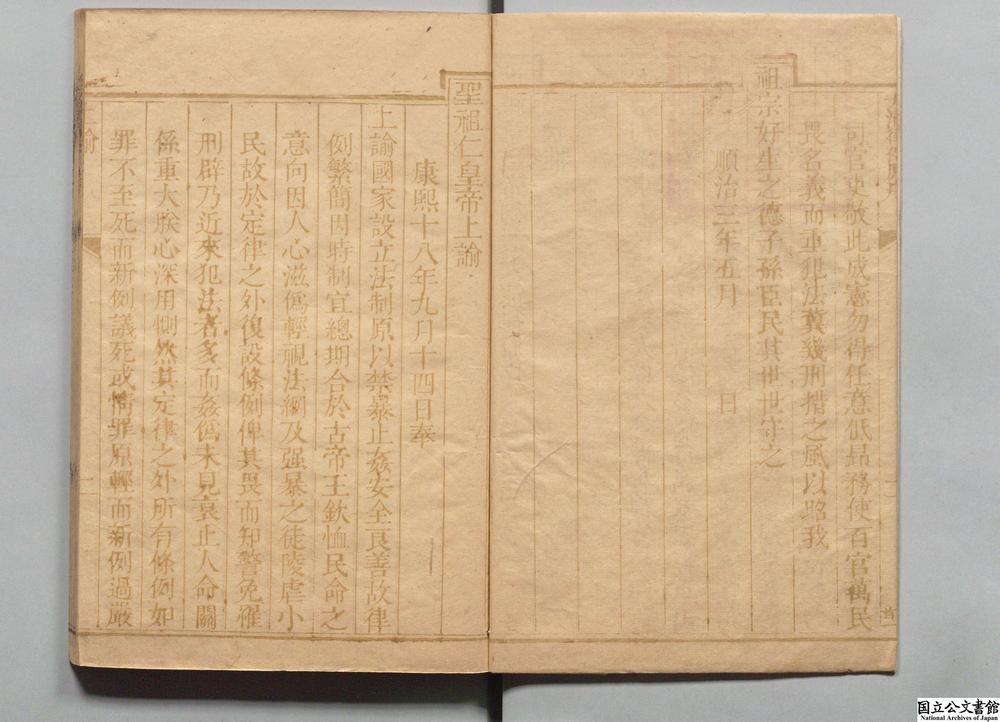 司官吏敬此成憲勿得任意低昻務使百官萬民
畏名義而重犯法冀幾刑措之風以昭我
祖宗好生之德子孫臣民其世世守之
順治三年五月　　　日
聖祖仁皇帝上諭
康熙十八年九月十四日奉
上諭國家設立法制原以禁暴止姦安全良善故律
例繁簡因時制宜總期合於古帝王欽恤民命之
意向因人心滋僞輕視法網及强暴之徒陵虐小
民故於定律之外復設條例俾其畏而知警免罹
刑辟乃近來犯法者多而姦僞未見衰止人命關
係重大朕心深用惻然其定律之外所有條例如
罪不至死而新例議死或情罪原輕而新例過嚴
諭
一
国立公文書館
National Archives of Japan